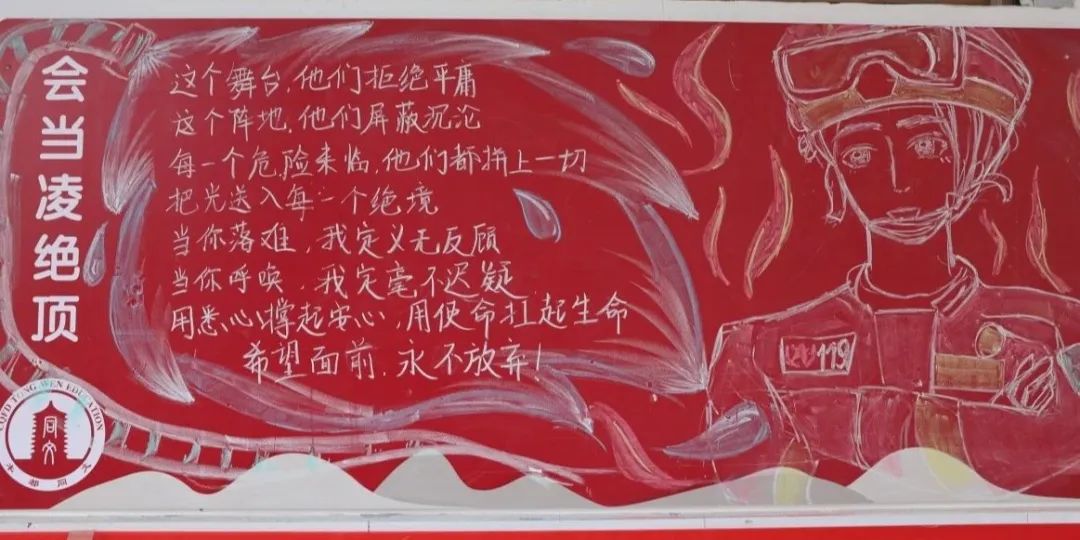 会当凌绝顶
这个舞台，他们拒绝平庸
这个阵地，他们屏蔽沉沦
每一个危险来临，他们都拼上一切
把光送入每一个绝境
当你落难，我定义无反顾
当你呼唤，我定毫不迟疑
用悉心撑起安心，用使命扛起生命
希望面前，永不放弃！
119
TONG WEN EDUCATION
同文